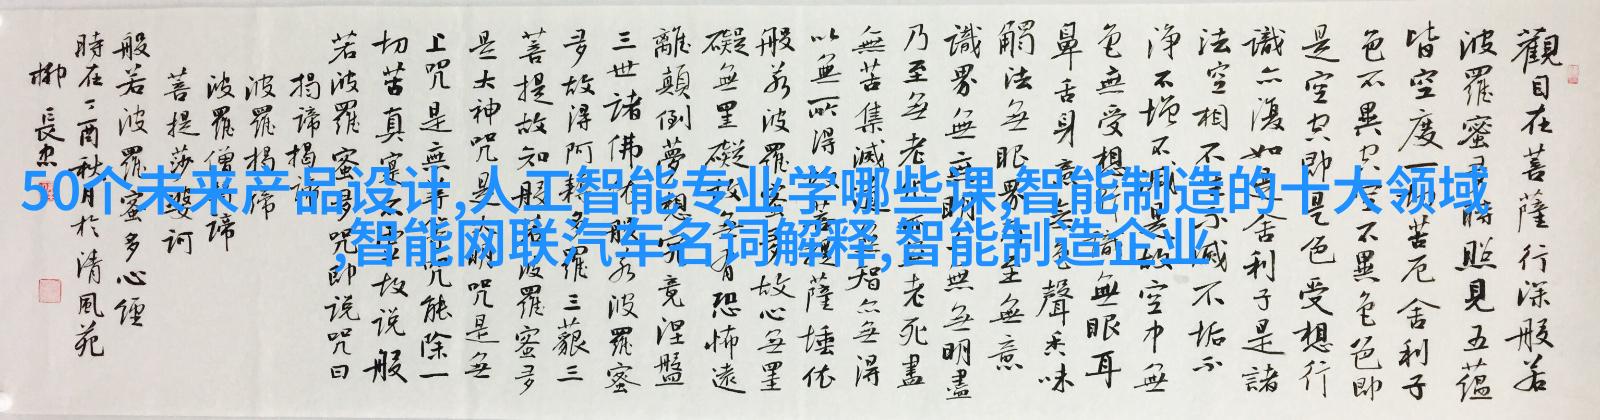 50个未来产品设计,人工智能专业学哪些课,智能制造的十大领域
,智能网联汽车名词解释,智能制造企业
觀自在菩薩行深般若
波羅蜜多時照見五蘊
皆空度一切苦厄舍利子
色不異空空不異色色即
是空空即是色受想行
識亦復如是舍利子是諸
法空相不生不滅不垢不
淨不增不減是故空中無
色無受想行識無眼耳
鼻舌身意無色聲香味
觸法無眼界乃至無意
識界無無明亦無無明盡
乃至無老死亦無老死盡
無苦集滅道無智亦無得
以無所得故菩提薩埵依
般若波羅蜜多故心無罣
礙無罣礙故無有恐怖遠
離顛倒夢想究竟涅盤
三世諸佛依般若波羅蜜
多故得阿耨多羅三藐三
菩提故知般若波羅蜜多
是大神咒是大明咒是無
上咒是無等等咒能除一
切苦真實不虛故說般
若波羅蜜多咒即說咒曰
揭諦揭諦
波羅揭諦
波羅僧揭諦
菩提莎婆訶
般若波羅蜜多心經
時在丁酉秋月於清風苑
柳長忠